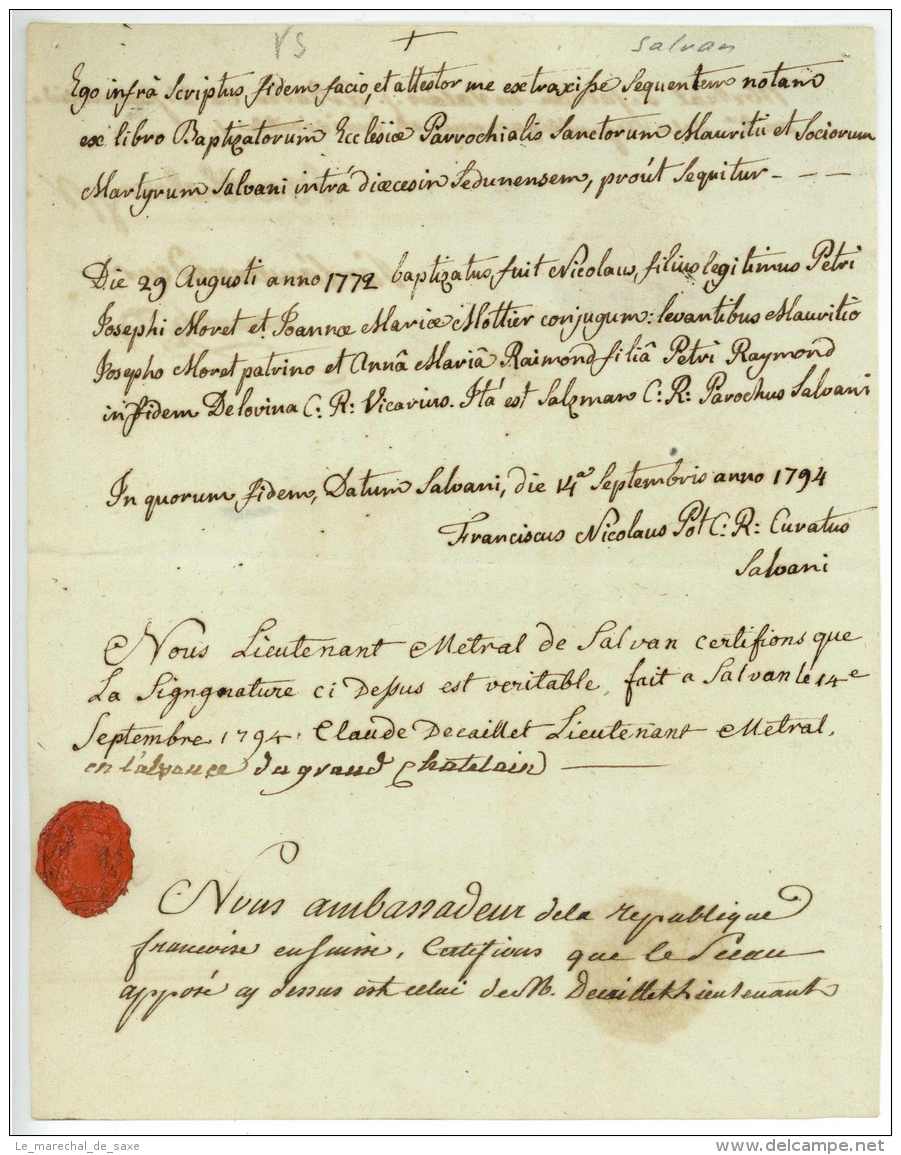 VS + Salvan
Ego infrà Scriptus fidem facio, et attestor me extraxisse Sequentem notam
ex libro Baptizatorum Ecclesiæ Parrochialis Sanctorum Mauritii et Sociorum
Martyrum Salvani intrá diœcesin Sedunensem, proút Sequitur - — —
Die 29 Augusti anno 1772 baptizatus fuit Nicolaus, filius legitimus Petri
Josephi Moret et Joannæ Mariæ Mottier conjugum: levantibus Mauritio
Josepho Moret patrino et Annâ Mariâ Raimond filiâ Petri Raymond
in fidem Delovina C: R: Vicarius. Itá est Salzman C: R: Parochus Salvani
In quorum fidem, Datum Salvani, die 14a Septembris anno 1794
Franciscus Nicolaus Pot C: R: Curatus
Salvani
Nous Lieutenant Metral de Salvan certifions que
La Signgnature ci Dessus est veritable, fait a Salvan le 14e
Septembre 1794. Claude Decaillet Lieutenant Metral,
en l'absence du grand Chatelain —
Nous ambassadeur dela republique
francoise en suisse, Certifions que le Sceau
apposé cy dessus est celui de M. Decaillet Lieutenant
Le_marechal_de_saxe
www.delcampe.net